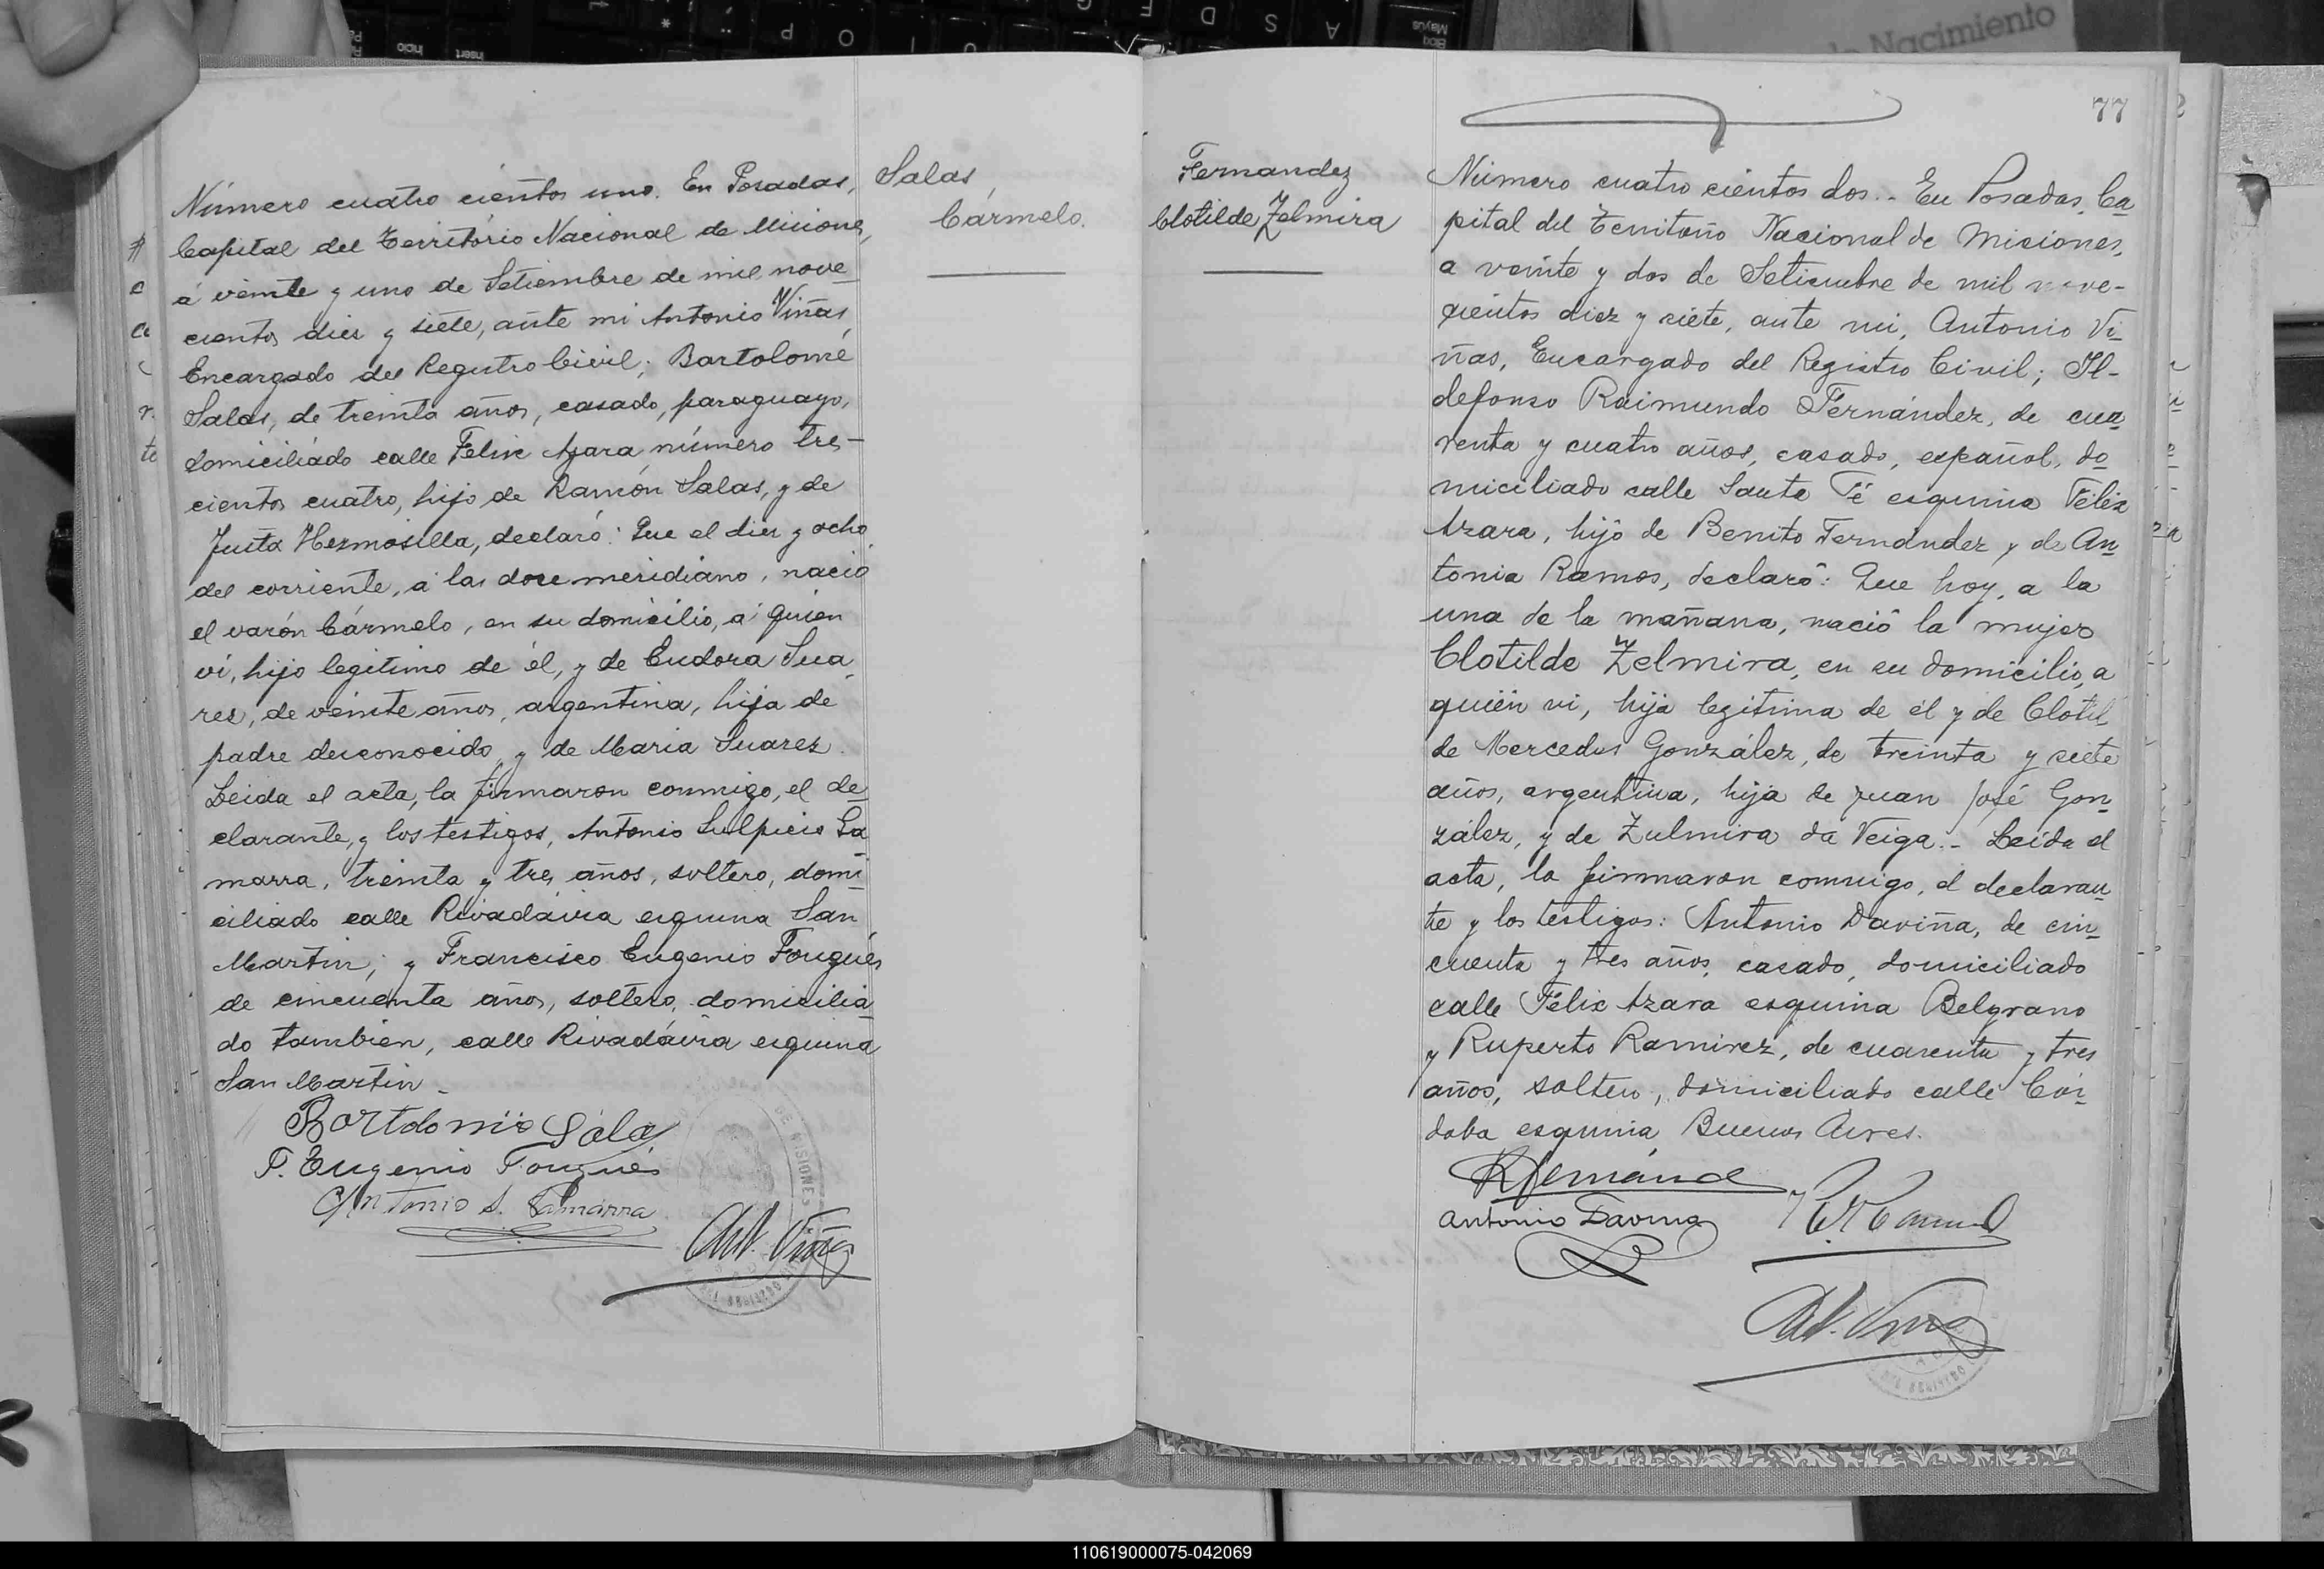 Salas
Cármelo.
Número cuatro cientos uno. En Posadas,
Capital del Território Nacional de Misiones,
á veinte y uno de Setiembre de mil nove
cientos diez y siete, ante mi Antonio Viñas,
Encargado del Registro Civil; Bartolomé
Salas, de treinta años, casado, paraguayo,
domiciliádo calle Felix Azara número tres-
cientos cuatro, hijo de Ramón Salas, y de
Justa Hermosilla, declaró: Que el diez y ocho
del corriente, á las doce meridiano, nació
el varón Cármelo, en su domicilio, á quien
ví, hijo legitimo de él, y de Eudora Sua
res, de veinte años, argentina, hija de
padre desconocido, y de Maria Suarez.
Leida el acta, la firmaron conmigo, el de
clarante, y los testigos, Antonio Sulpicio Ga
marra, treinta y tres años, soltero, domi
ciliado calle Rivadávia esquina San
Martin; y Francisco Eugenio Fouqués
de cincuenta años, soltero, domicilia
do tambien, calle Rivadávia esquina
San Martin.
Bartolomé Salas
F. Eugenio Fouqués
Antonio S. Gamarra
Ant. Viñas
DE MISIONES
DEL REGISTRO
77
Fernandez
Clotilde Zelmira
Número cuatro cientos dos.- En Posadas, Ca
pital del Territorio Nacional de Misiones,
a veinte y dos de Setiembre de mil nove-
cientos diez y siete, ante mi, Antonio Vi
ñas, Encargado del Registro Civil; Il-
defonso Raimundo Fernández, de cua
renta y cuatro años, casado, español, do
miciliado calle Santa Fé esquina Félix
Azara, hijo de Benito Fernández y de An
tonia Ramos, declaró: Que hoy, a la
una de la mañana, nació la mujer
Clotilde Zelmira, en su domicilio, a
quién vi, hija legítima de él y de Clotil
de Mercedes González, de treinta y siete
años, argentina, hija de Juan José Gon
zález, y de Zulmira da Veiga.- Leída el
acta, la firmaron conmigo, el declaran
te y los testigos: Antonio Daviña, de cin
cuenta y tres años, casado, domiciliado
calle Félix Azara esquina Belgrano
y Ruperto Ramirez, de cuarenta y tres
años, soltero, domiciliado calle Cór
doba esquina Buenos Aires.
Antonio Daviña
Ant. Viñas
DEL REGISTRO
de Nacimiento
110619000075-042069